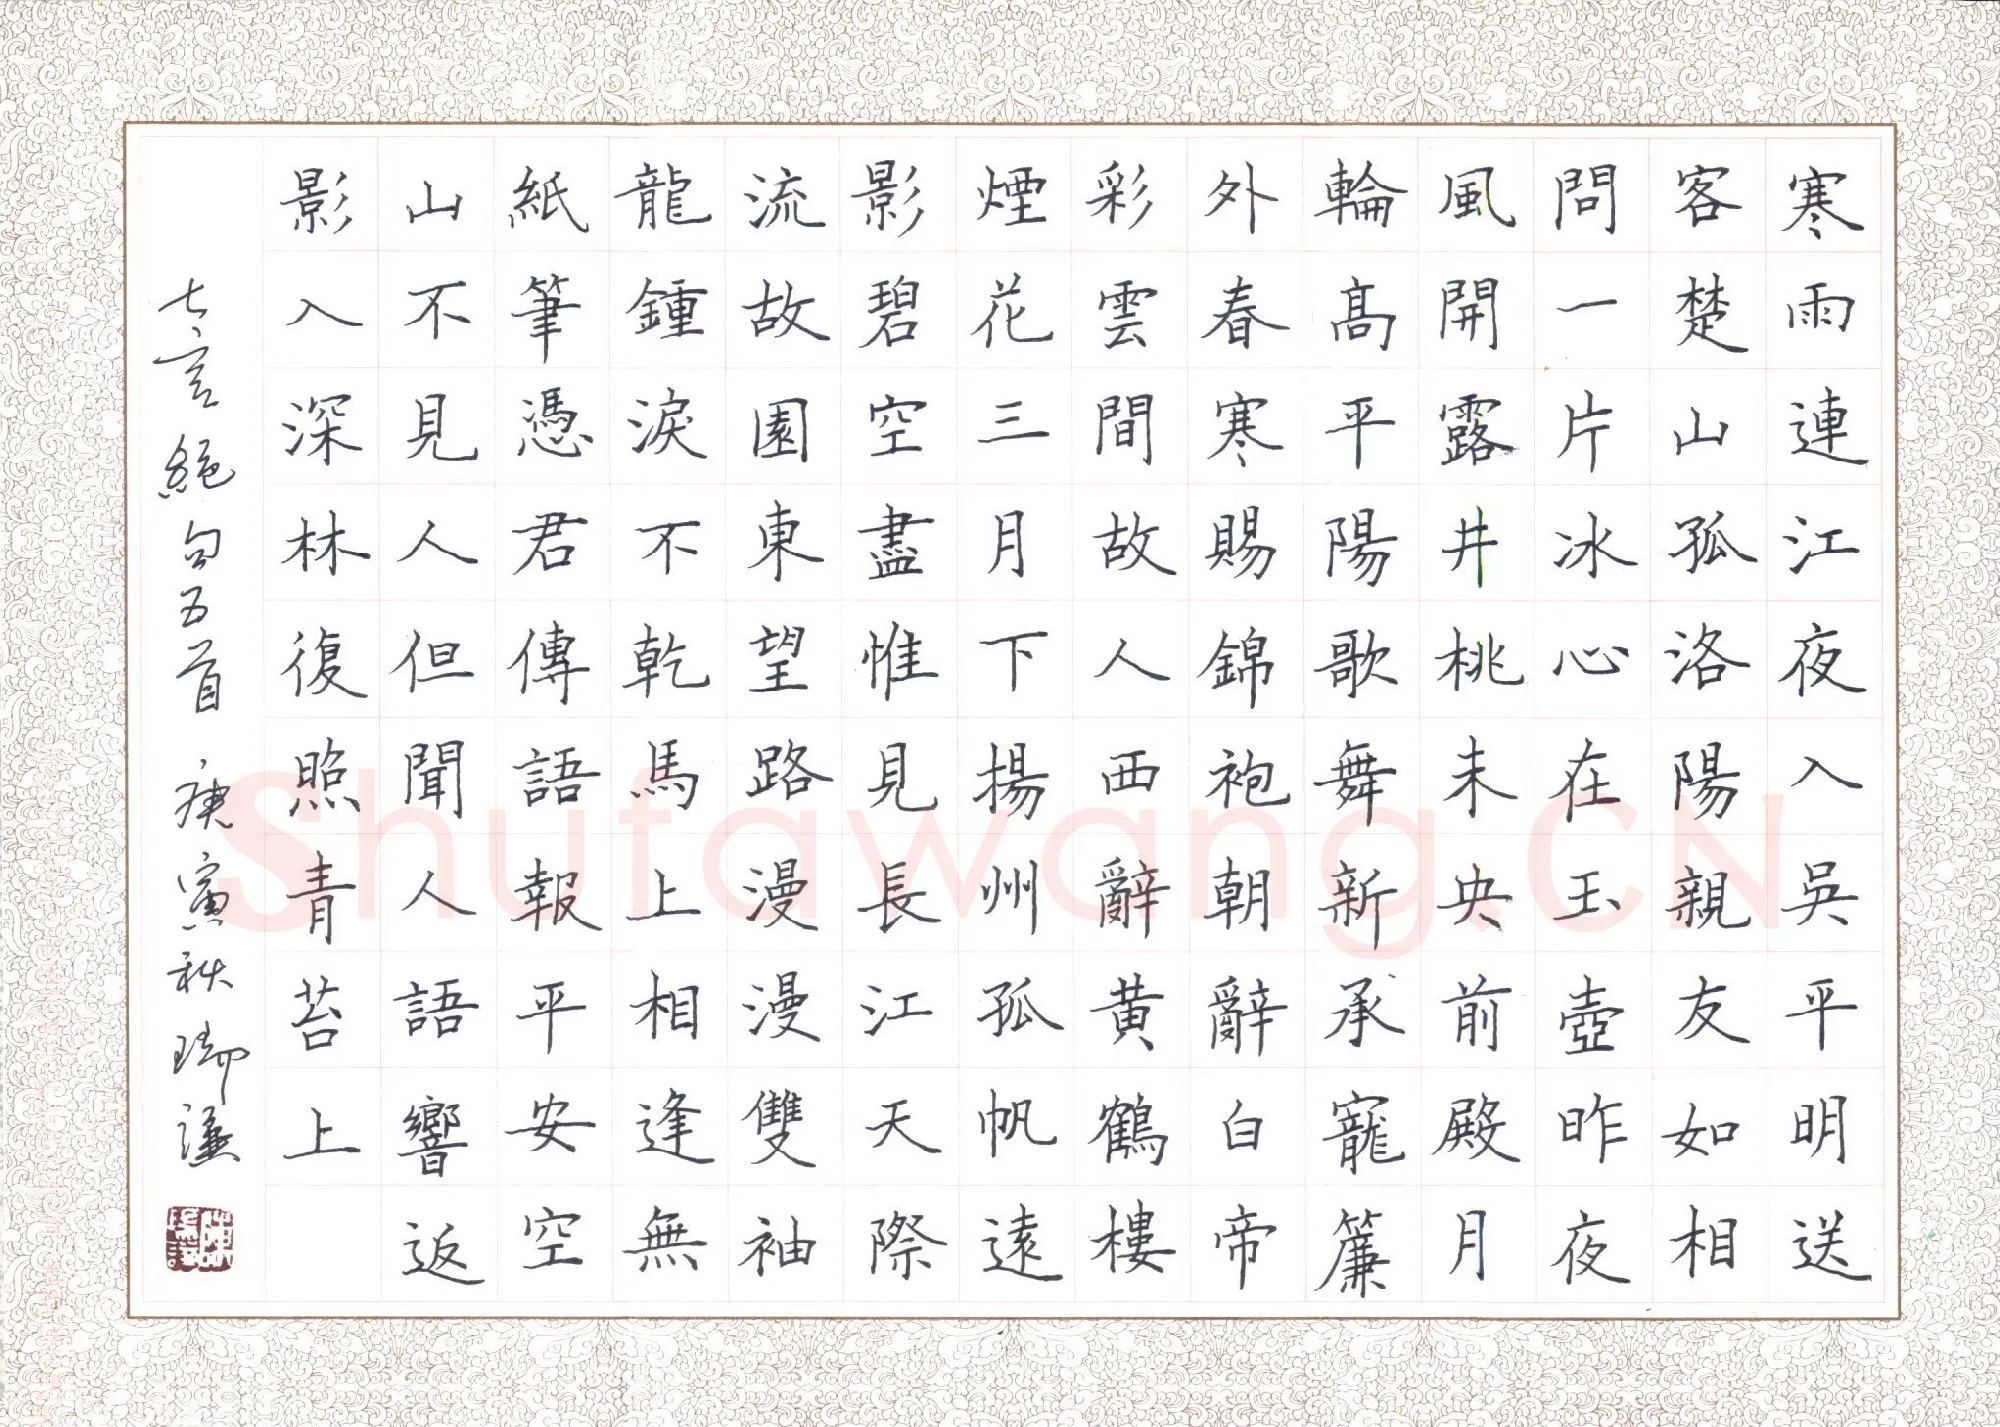 寒雨連江夜入吳平明送
客楚山孤洛陽親友如相
問一片冰心在玉壺昨夜
風開露井桃未央前殿月
輪高平陽歌舞新承寵簾
外春寒賜錦袍朝辭白帝
彩雲間故人西辭黃鶴樓
煙花三月下揚州孤帆遠
影碧空盡惟見長江天際
流故園東望路漫漫雙袖
龍鍾淚不乾馬上相逢無
紙筆憑君傳語報平安空
山不見人但聞人語響返
影入深林復照青苔上
七言絕句五首 庚寅秋 瑞謙
Shufawang.CN